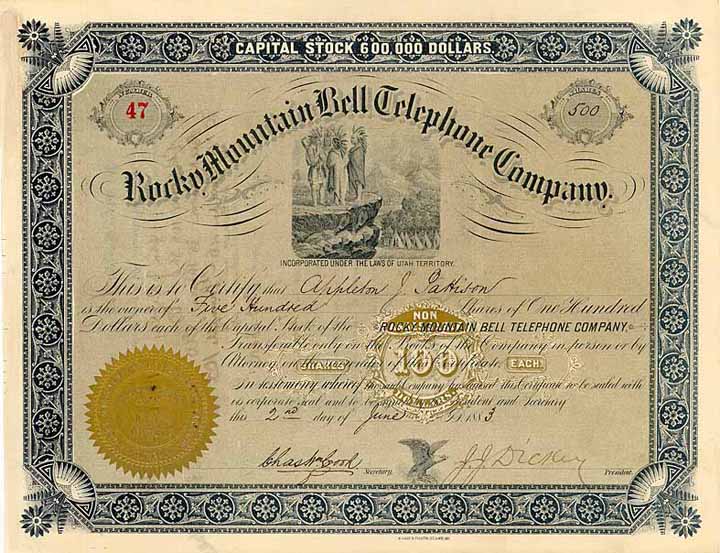 CAPITAL STOCK 600,000 DOLLARS.
NUMBER
47
SHARES
500
Rocky Mountain Bell Telephone Company.
INCORPORATED UNDER THE LAWS OF UTAH TERRITORY.
This is to Certify that Appleton J. Pattison
is the owner of Five Hundred Shares of One Hundred
Dollars each of the Capital Stock of the ROCKY MOUNTAIN BELL TELEPHONE COMPANY.
NON
Transferable only on the Books of the Company in person or by
Attorney on the surrender of this Certificate.
SHARES
100
EACH.
In testimony whereof the said company has caused this Certificate to be sealed with
its corporate seal and to be signed by its President and Secretary
this 2nd day of June 1883
Chas Wm Cook Secretary.
J. J. Dickey President.